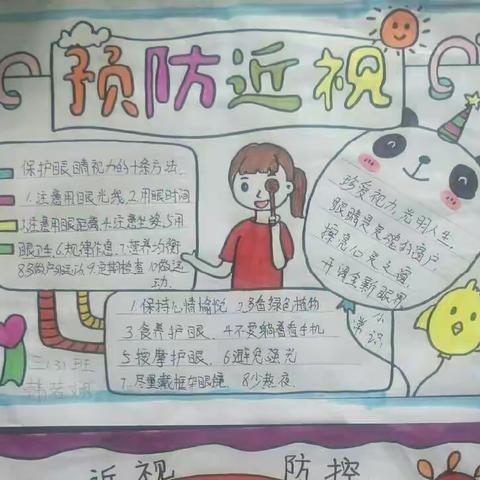 预防近视
保护眼睛视力的十条方法.
1.注意用眼光线,2.用眼时间
3.注意用眼距离,4.注意坐姿,5.用
眼卫生,6.规律作息,7.营养均衡
8.多做户外运动9.定期检查10做运
动.
珍爱视力,光明人生.
眼睛是灵魂的窗户
擦亮心灵之窗,
开阔全新眼界
小
常识
1.保持心情愉悦 2.多看绿色植物
3.食养护眼. 4.不要躺着看手机
5.按摩护眼. 6避免强光
7.尽量戴框架眼镜. 8少熬夜.
三(3)班
近视 防控